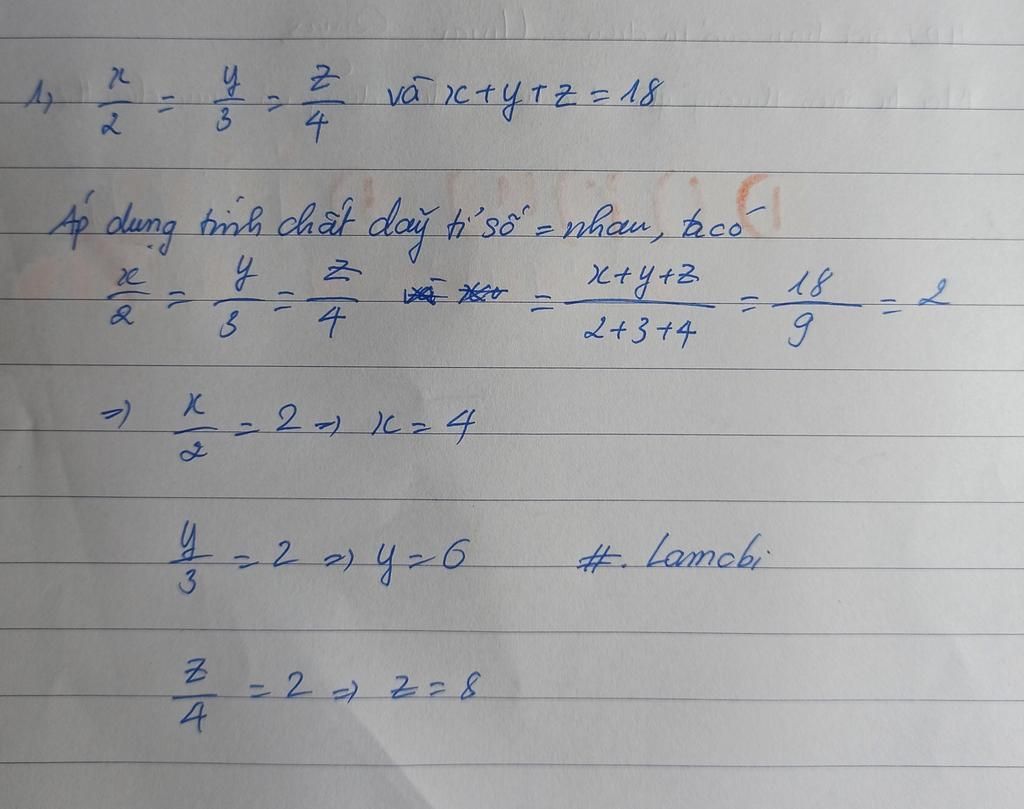 1, x/2 = y/3 = z/4 và x+y+z = 18
Áp dụng tính chất dãy tỉ số = nhau, ta có
x/2 = y/3 = z/4 = x+y+z/2+3+4 = 18/9 = 2
=> x/2 = 2 => x = 4
y/3 = 2 => y = 6 #. Lamchi
z/4 = 2 => z = 8